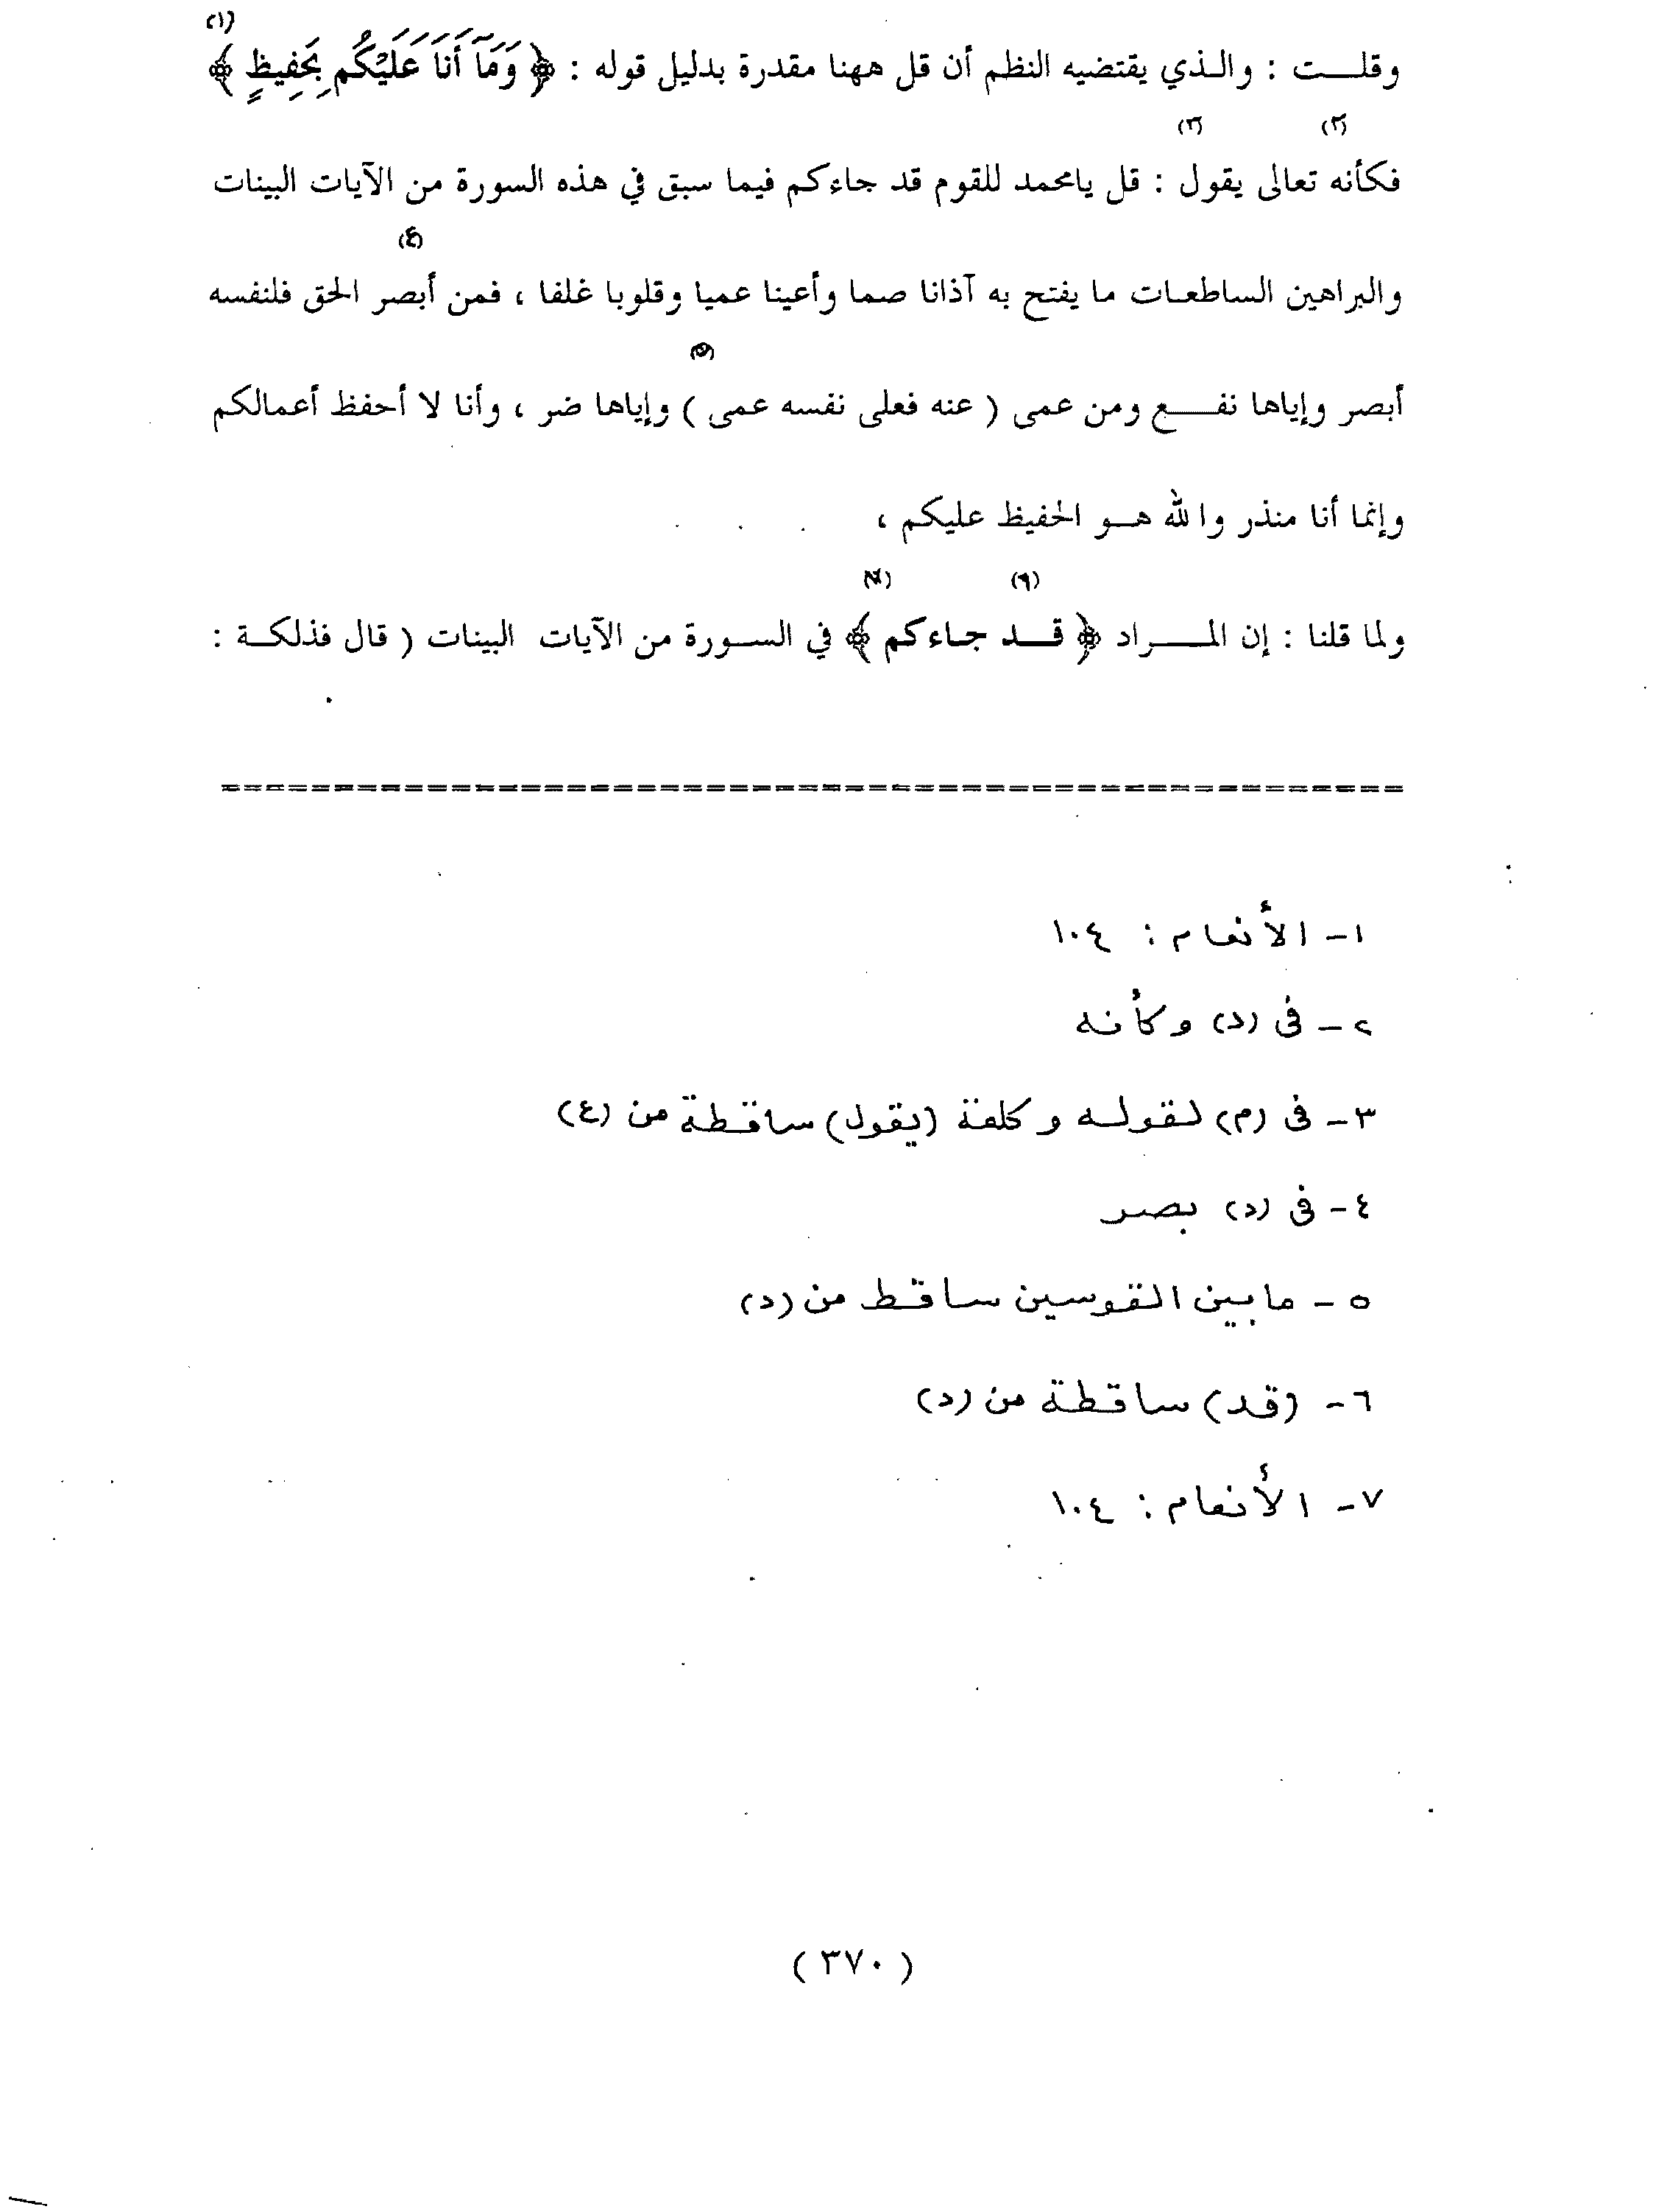 (١)
وقلت : والذي يقتضيه النظم أن قل ههنا مقدرة بدليل قوله : ﴿ وَمَآ أَنَا۠ عَلَيْكُم بِحَفِيظٍ ﴾
(٢) (٣)
فكأنه تعالى يقول : قل يامحمد للقوم قد جاءكم فيما سبق في هذه السورة من الآيات البينات
(٤)
والبراهين الساطعات ما يفتح به آذانا صما وأعينا عميا وقلوبا غلفا ، فمن أبصر الحق فلنفسه
(٥)
أبصر وإياها نفع ومن عمى ( عنه فعلى نفسه عمى ) وإياها ضر ، وأنا لا أحفظ أعمالكم
وإنما أنا منذر والله هو الحفيظ عليكم ،
(٦) (٧)
ولما قلنا : إن المراد ﴿ قد جاءكم ﴾ في السورة من الآيات البينات ( قال فذلكة :
١- الأنعام : ١٠٤
٢- فى (د) وكأنه
٣- فى (م) لقوله وكلمة (يقول) ساقطة من (ع)
٤- فى (د) بصر
٥- مابين القوسين ساقط من (د)
٦- (قد) ساقطة من (د)
٧- الأنعام : ١٠٤
( ٣٧٠ )